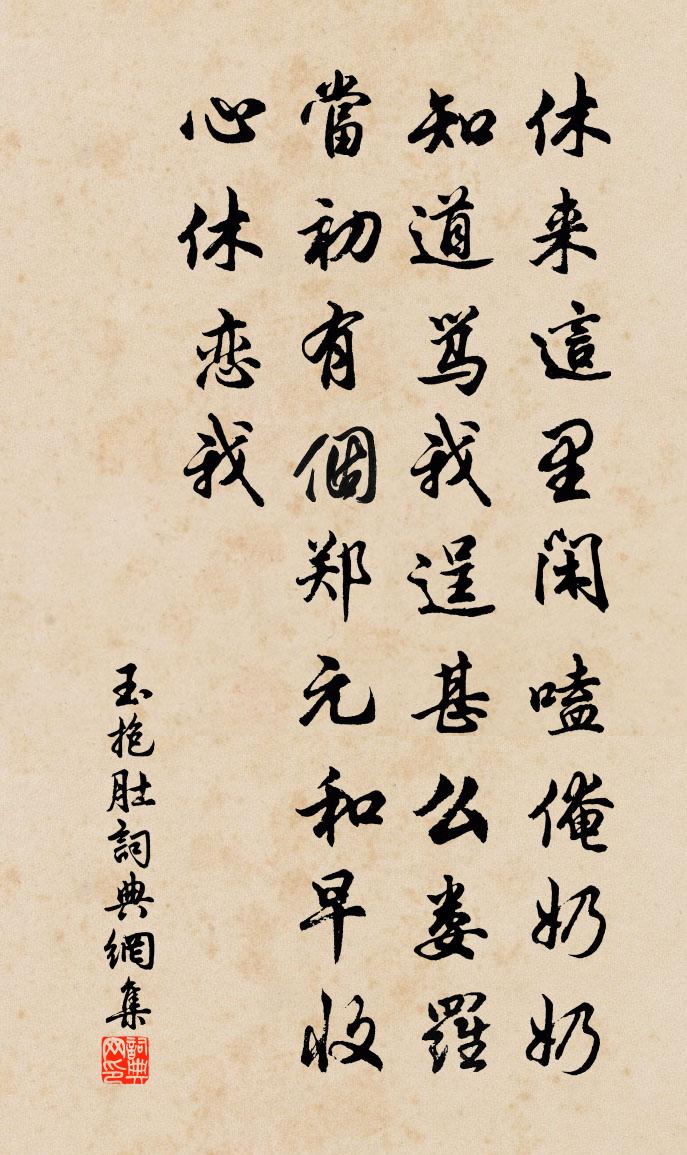 休来這里閑嗑俺奶奶
知道骂我逞甚么娄羅
當初有個郑元和早收
心休恋我
玉抱肚詞典網集
詞典网印